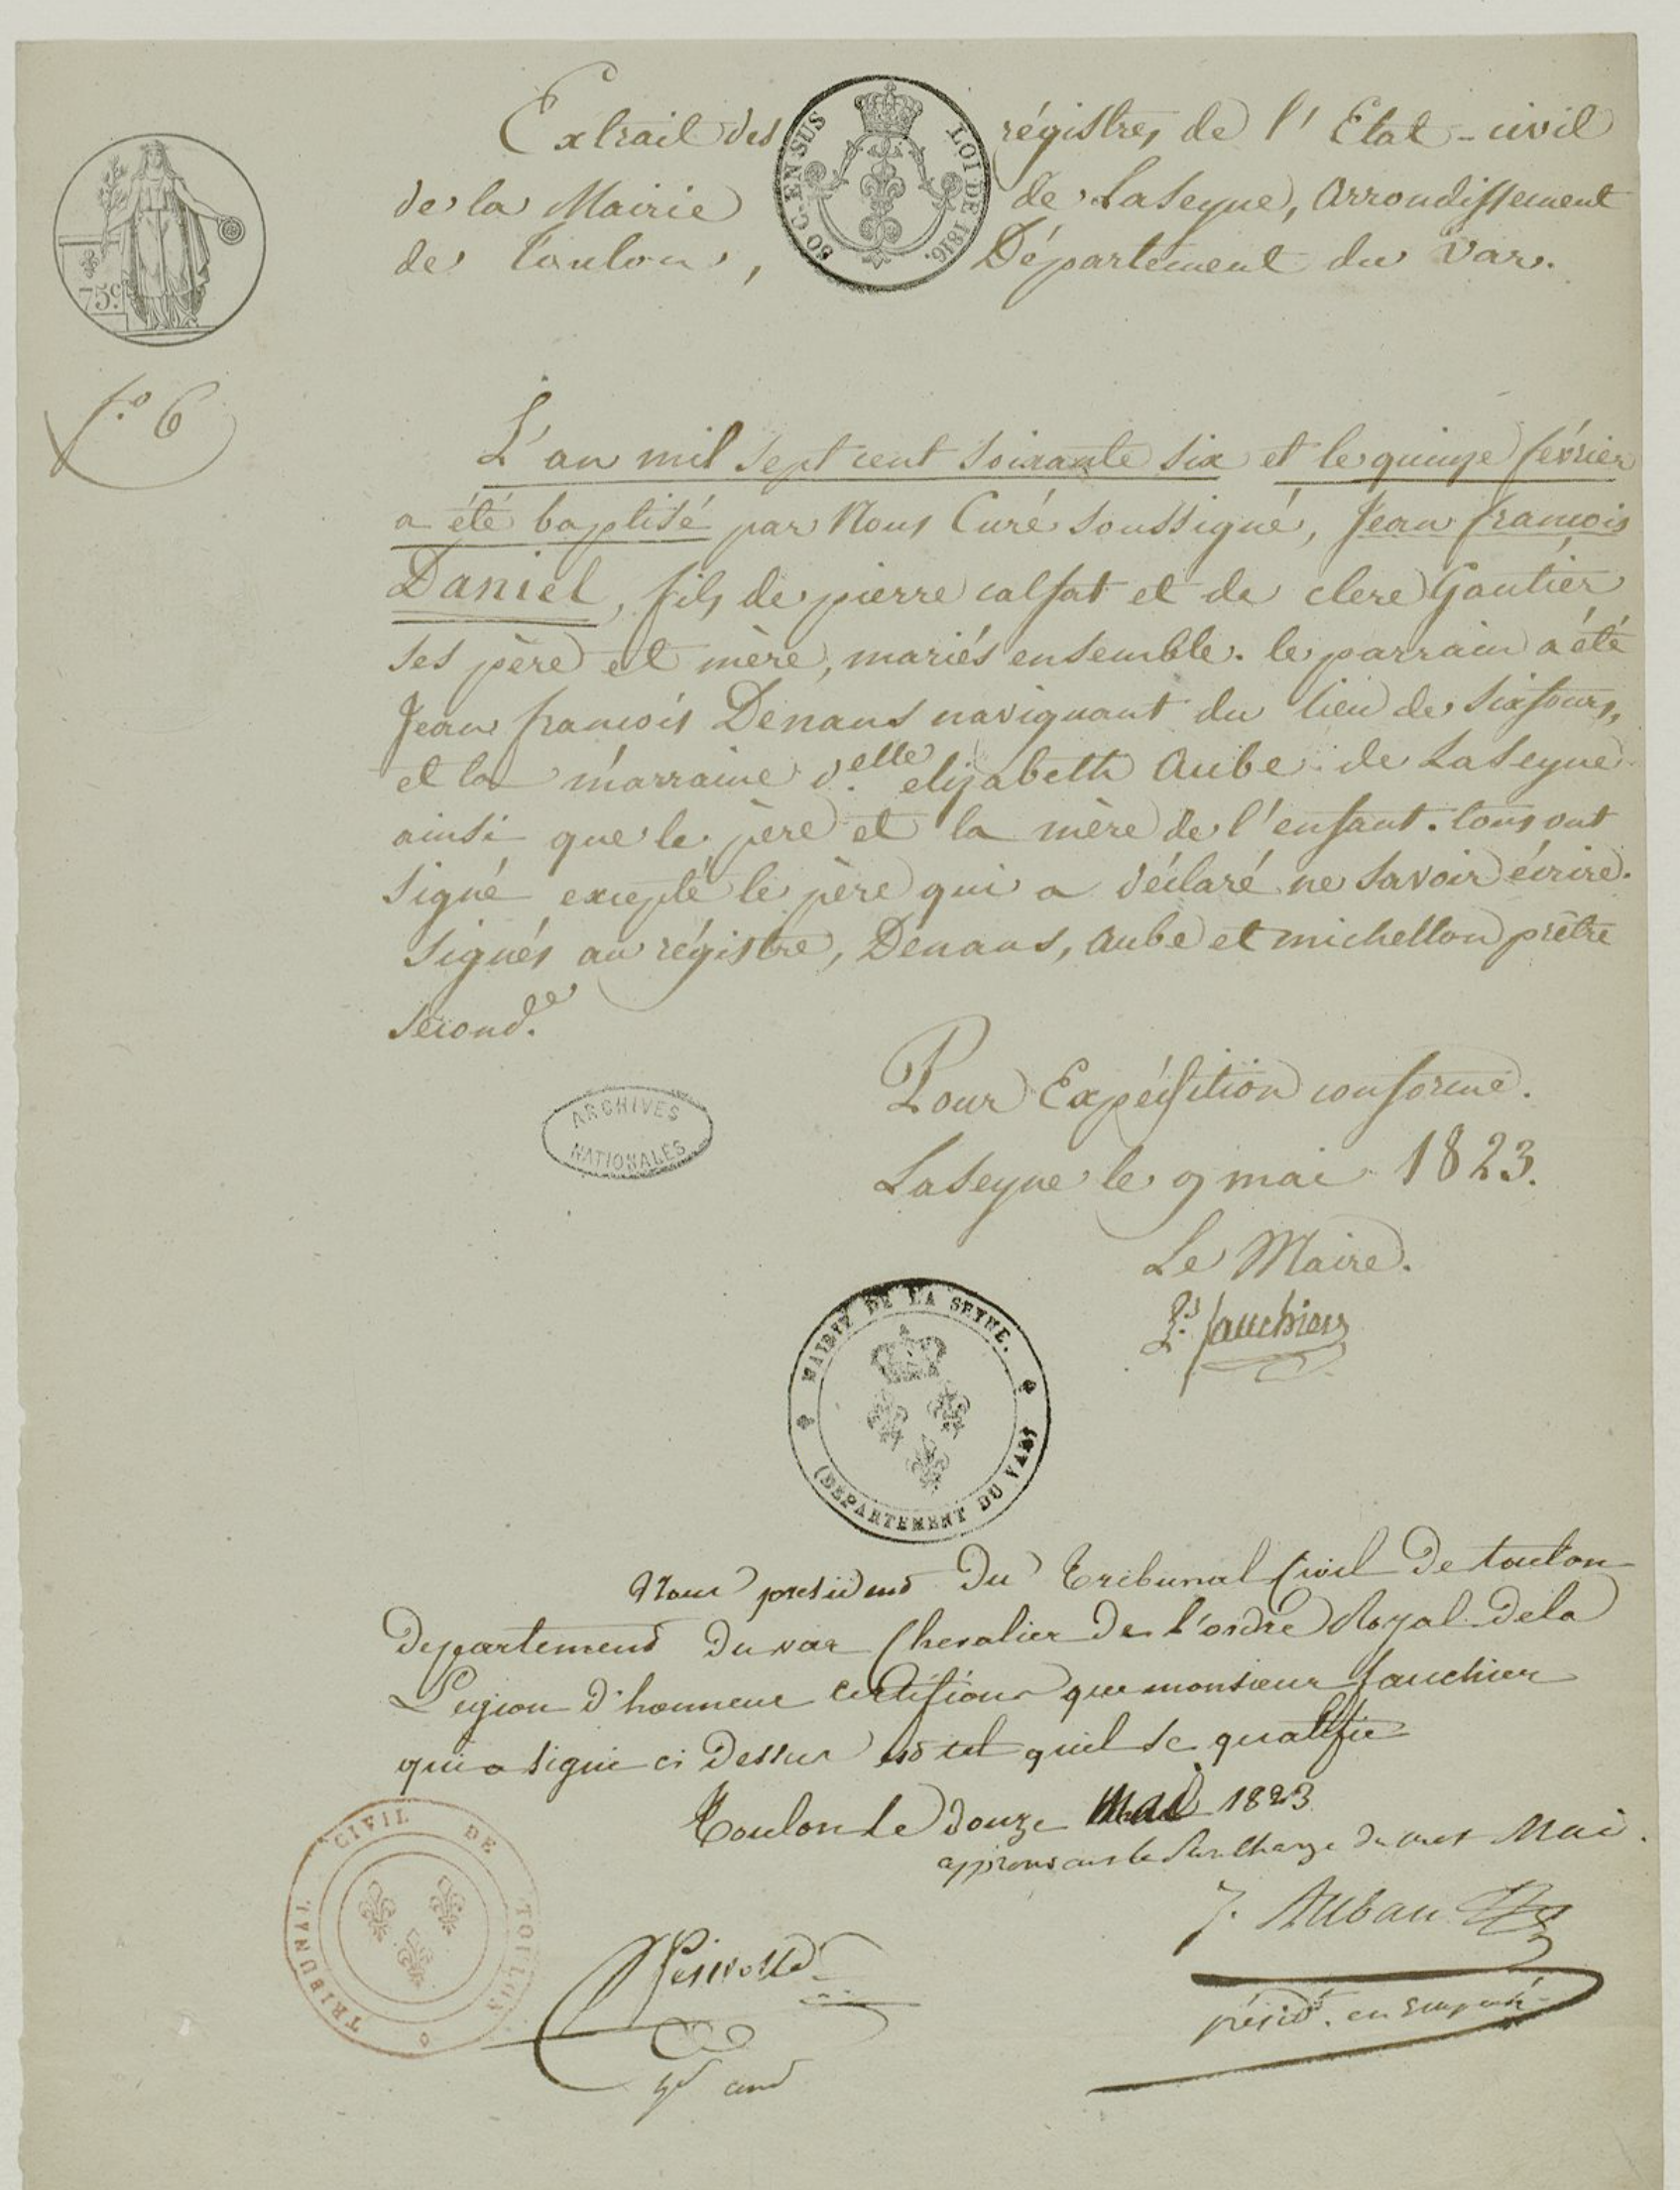 Extrait des régistres de l'Etat-civil
de la Mairie de LaSeyne, Arrondissement
de Toulon, Département du Var.
50 C. EN SUS
LOI DE 1816.
75c
f.º 6
L'an mil sept cent soixante six et le quinze février
a été baptisé par Nous Curé soussigné, Jean françois
Daniel, fils de pierre calfat et de clere Gautier
ses père et mère, mariés ensemble. le parrain a été
Jean françois Denans naviguant du lieu de Sixfours,
et la marraine d.elle elizabeth Aube de LaSeyne
ainsi que le père et la mère de l'enfant. tous ont
signé excepté le père qui a déclaré ne savoir écrire.
Signés au régistre, Denans, Aube et michellon prêtre
second.re
Pour Expédition conforme.
LaSeyne le 9 mai 1823.
Le Maire.
fauchier
ARCHIVES
NATIONALES
MAIRIE DE LA SEYNE.
(DEPARTEMENT DU VAR)
Nous president Du Tribunal Civil De toulon
Departement Du var Chevalier De L'ordre Royal De la
Legion D'honneur certifions que monsieur fauchier
qui a signé ci Dessus est tel quil se qualifie
Toulon Le Douze Mai 1823
approuvant la Surcharge du mot Mai.
TRIBUNAL CIVIL DE TOULON
J. Auban
présidt. en